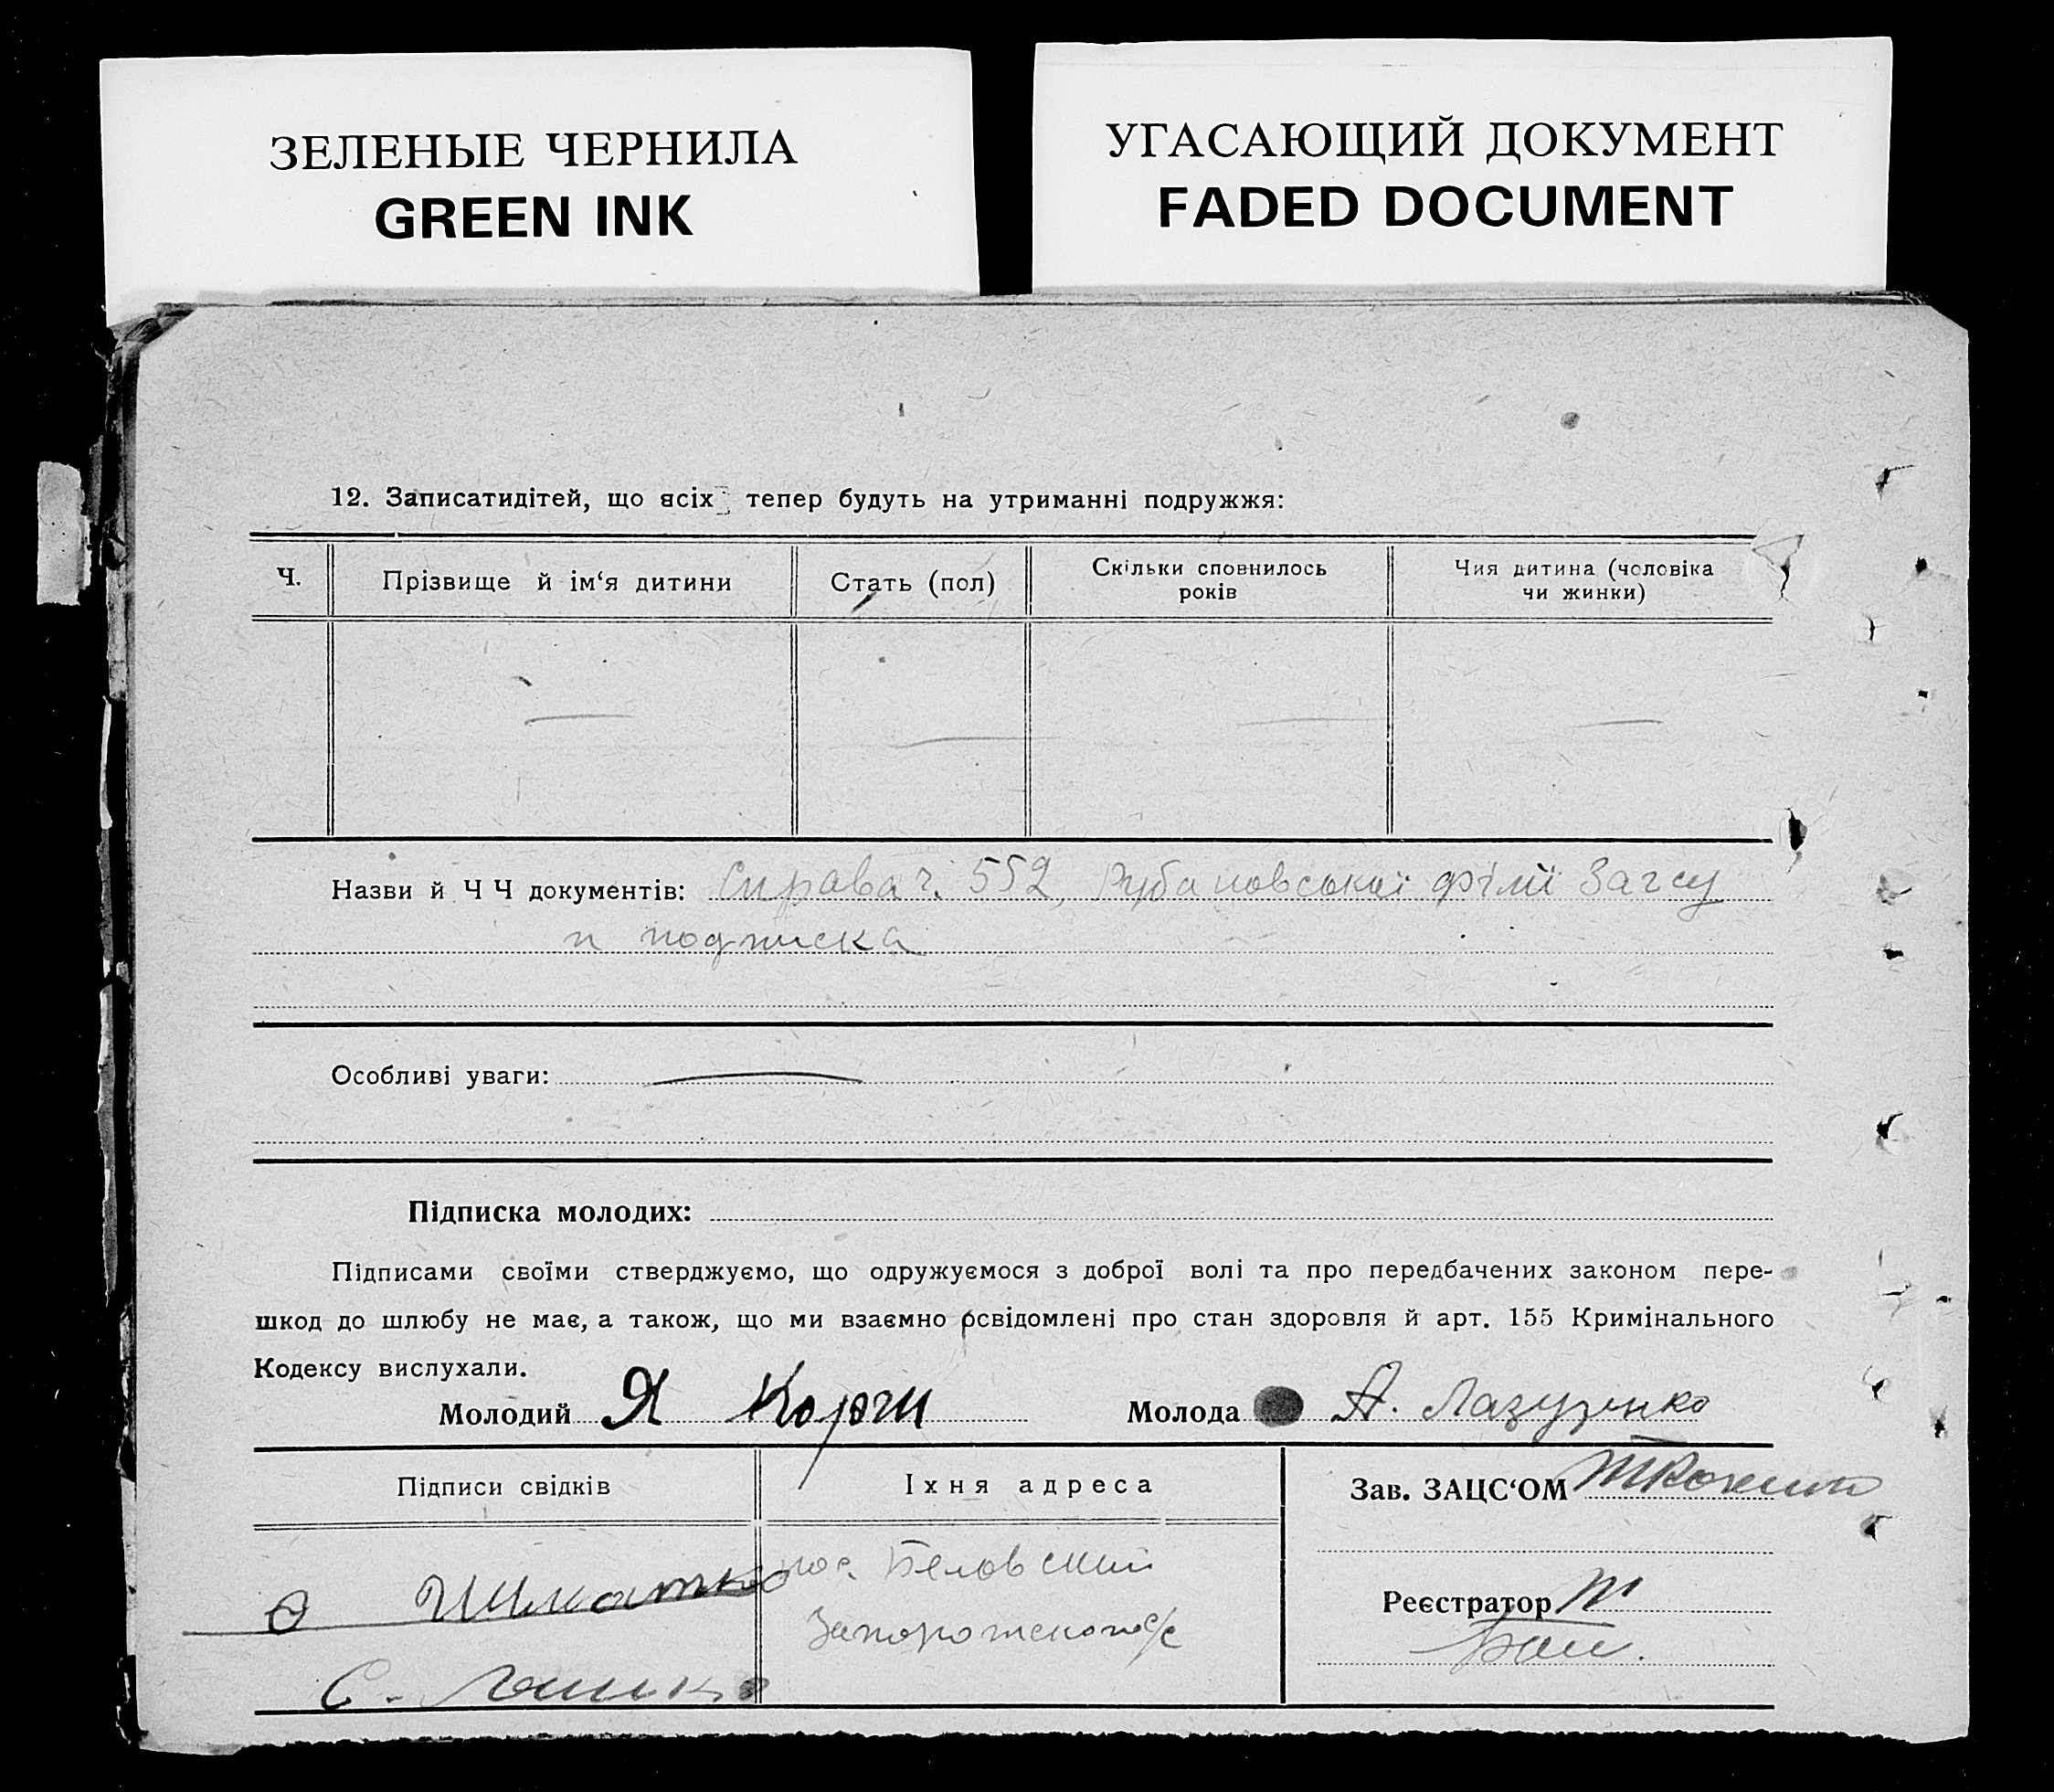 ЗЕЛЕНЫЕ ЧЕРНИЛА
GREEN INK
УГАСАЮЩИЙ ДОКУМЕНТ
FADED DOCUMENT
12. Записатидітей, що всіх тепер будуть на утриманні подружжя:
Ч.
Прізвище й ім‘я дитини
Стать (пол)
Скільки сповнилось
років
Чия дитина (чоловіка
чи жинки)
Назви й Ч Ч документів: Справа ч. 552, Рубановської філії Загсу
и подписка
Особливі уваги:
Підписка молодих:
Підписами своїми стверджуємо, що одружуємося з доброї волі та про передбачених законом пере-
шкод до шлюбу не має, а також, що ми взаємно освідомлені про стан здоровля й арт. 155 Кримінального
Кодексу вислухали.
Молодий Я
Молода А. Лазуренко
Підписи свідків
Іхня адреса
Зав. ЗАЦС‘ОМ
Шматко
пос. Беловский
Запорожского с/с
Реєстратор
С.